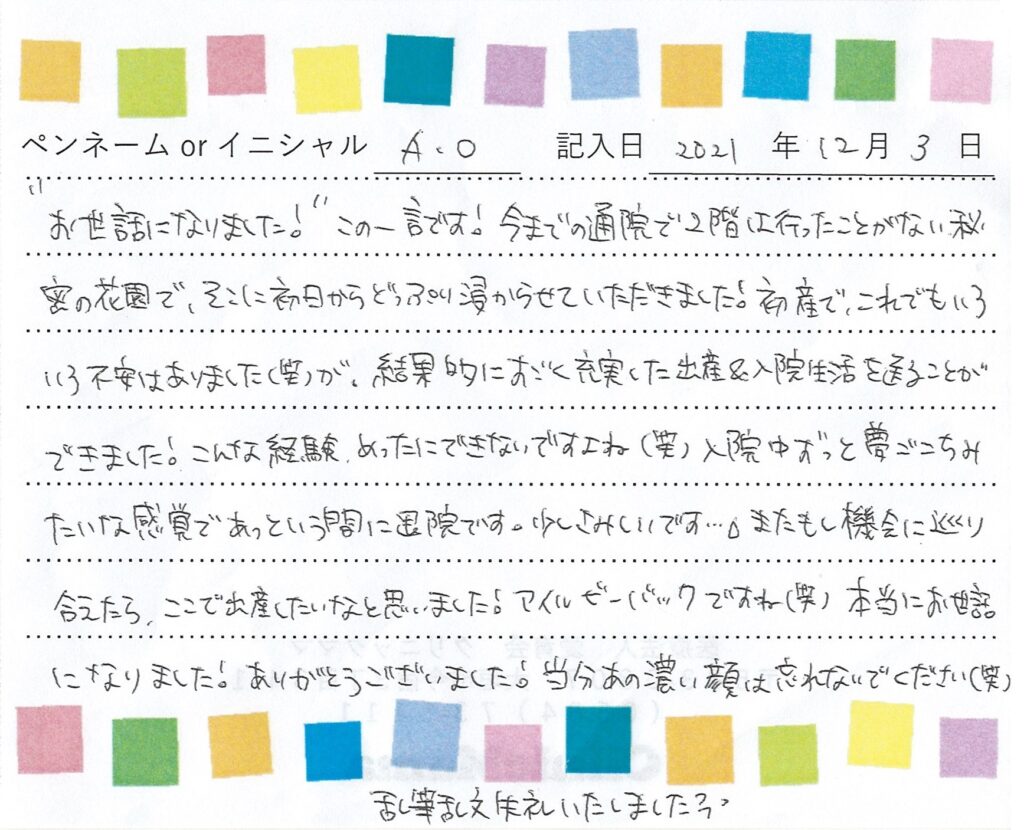 ペンネーム or イニシャル A.O 記入日 2021 年 12 月 3 日
"お世話になりました!" この一言です! 今までの通院で2階は行ったことがない秘
密の花園で、そこに初日からどっぷり浸からせていただきました! 初産で、これでもいろ
いろ不安はありました(笑)が、結果的にすごく充実した出産&入院生活を送ることが
できました! こんな経験、めったにできないですよね(笑) 入院中ずっと夢ごこちみ
たいな感覚であっという間に退院です。少しさみしいです…。またもし機会に巡り
合えたら、ここで出産したいなと思いました! アイルビーバックですね(笑) 本当にお世話
になりました! ありがとうございました! 当分あの濃い顔は忘れないでください(笑)
乱筆乱文失礼いたしましたっ。